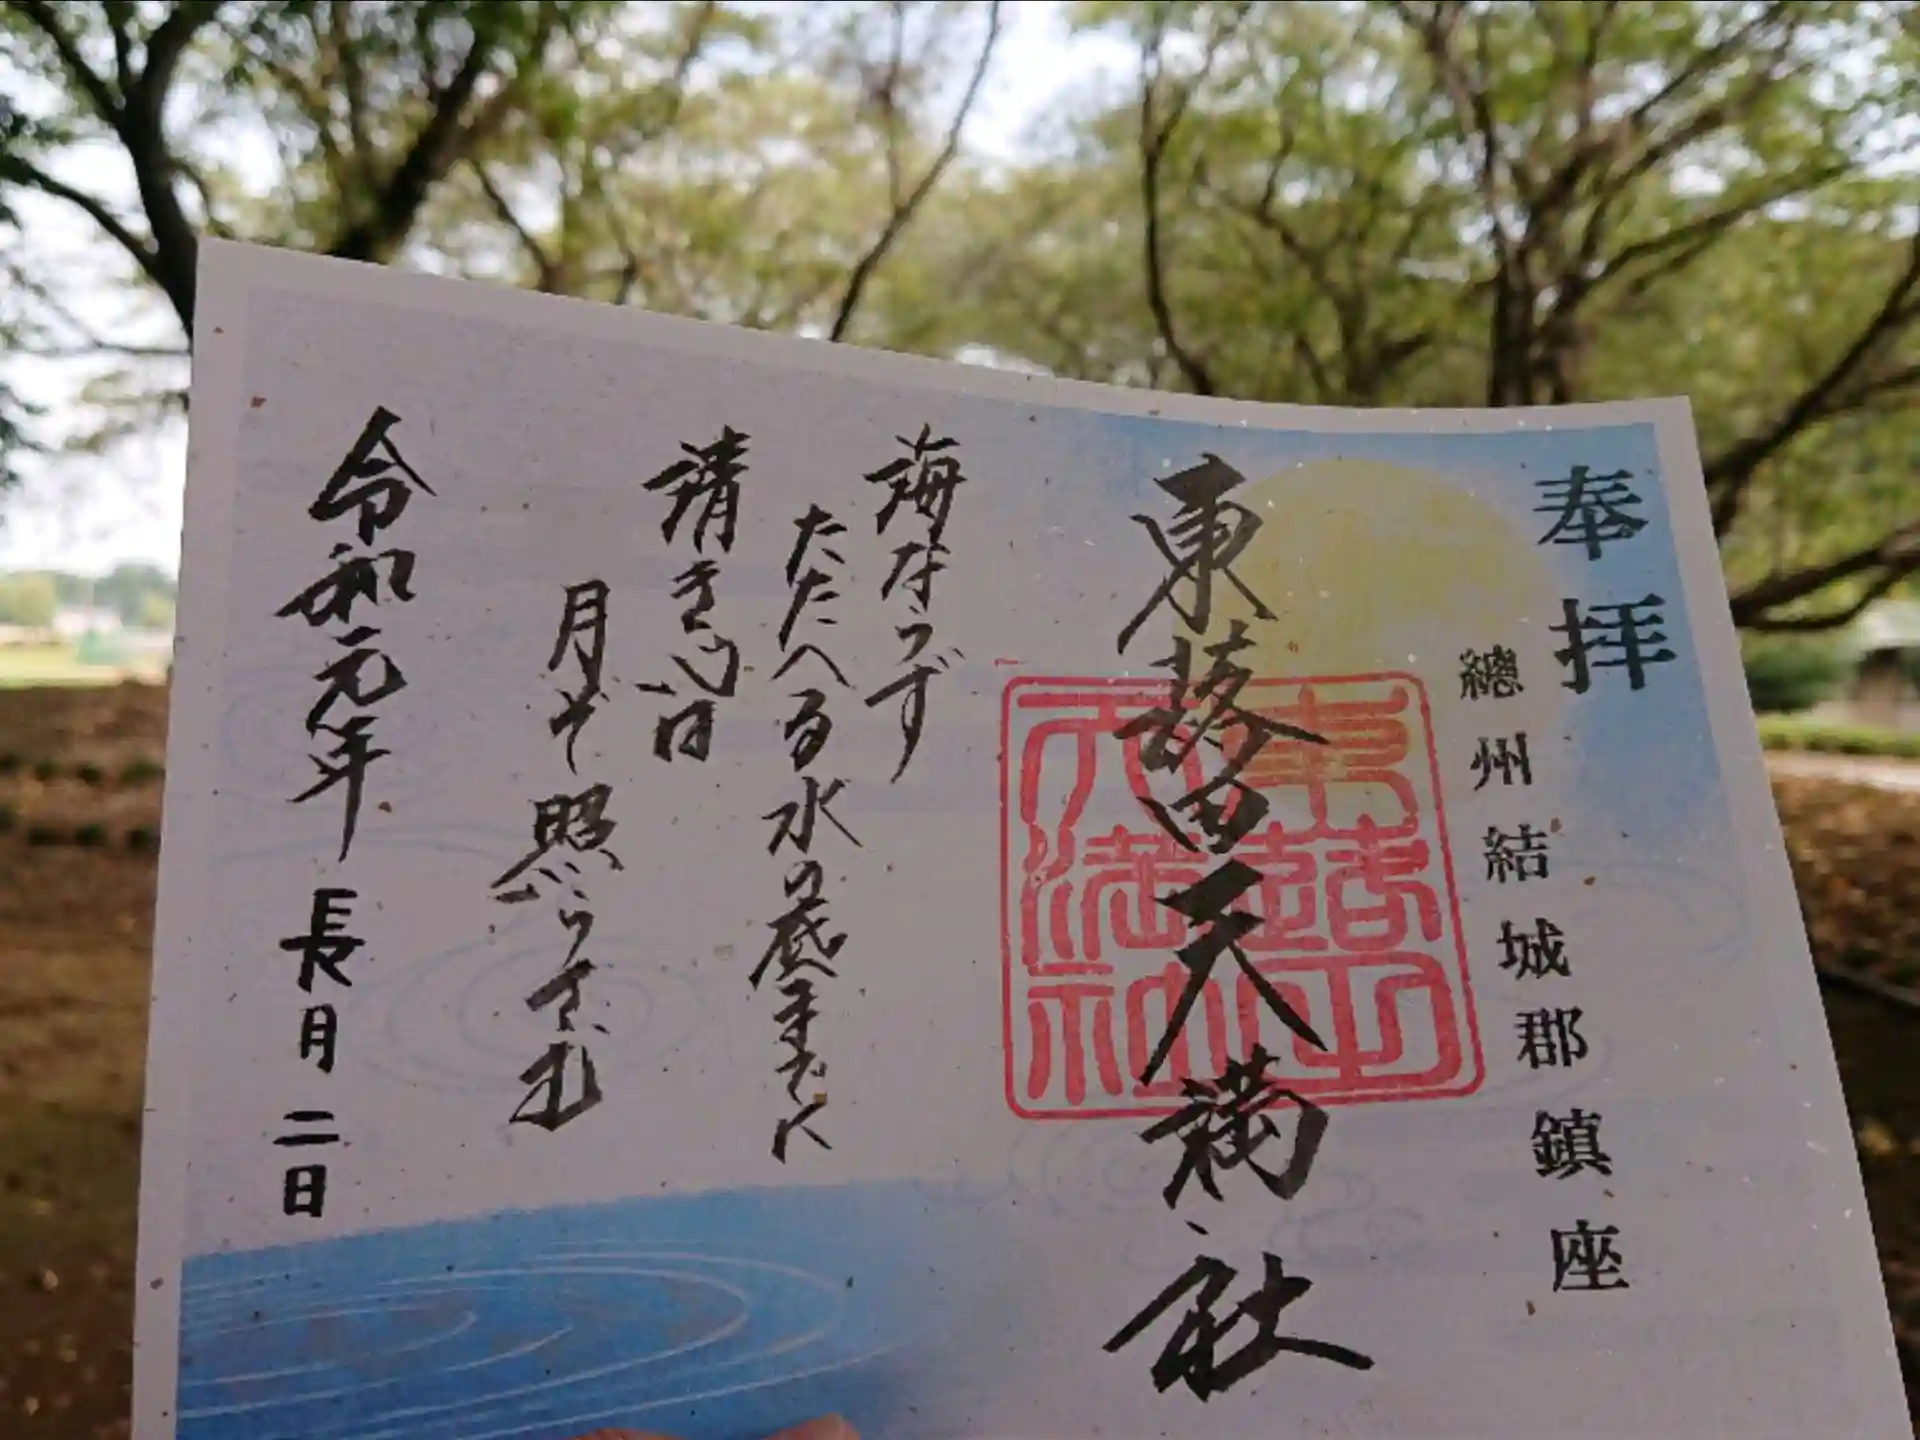 奉拝
總州結城郡鎮座
東蕗田天満社
海ならず
たたへる水の底までに
清き心は
月ぞ照らさむ
令和元年 長月 二日